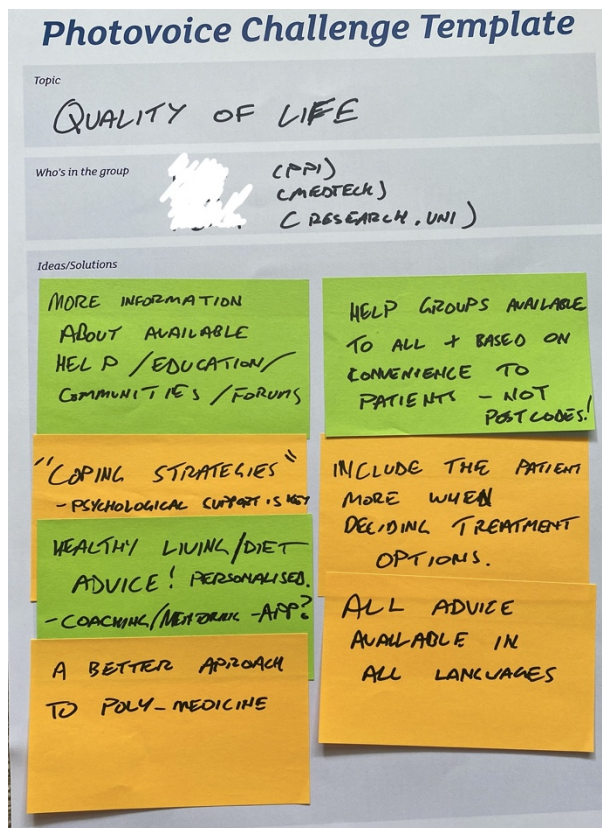 Photovoice Challenge Template
Topic
QUALITY OF LIFE
Who's in the group
(PPI)
(MEDTECH)
(RESEARCH, UNI)
Ideas/Solutions
MORE INFORMATION
ABOUT AVAILABLE
HELP/EDUCATION/
COMMUNITIES/FORUMS
"COPING STRATEGIES"
- PSYCHOLOGICAL SUPPORT IS KEY
HEALTHY LIVING/DIET
ADVICE! PERSONALISED.
- COACHING/MENTORING - APP?
A BETTER APROACH
TO POLY-MEDICINE
HELP GROUPS AVAILABLE
TO ALL + BASED ON
CONVENIENCE TO
PATIENTS - NOT
POSTCODES!
INCLUDE THE PATIENT
MORE WHEN
DECIDING TREATMENT
OPTIONS.
ALL ADVICE
AVAILABLE IN
ALL LANGUAGES